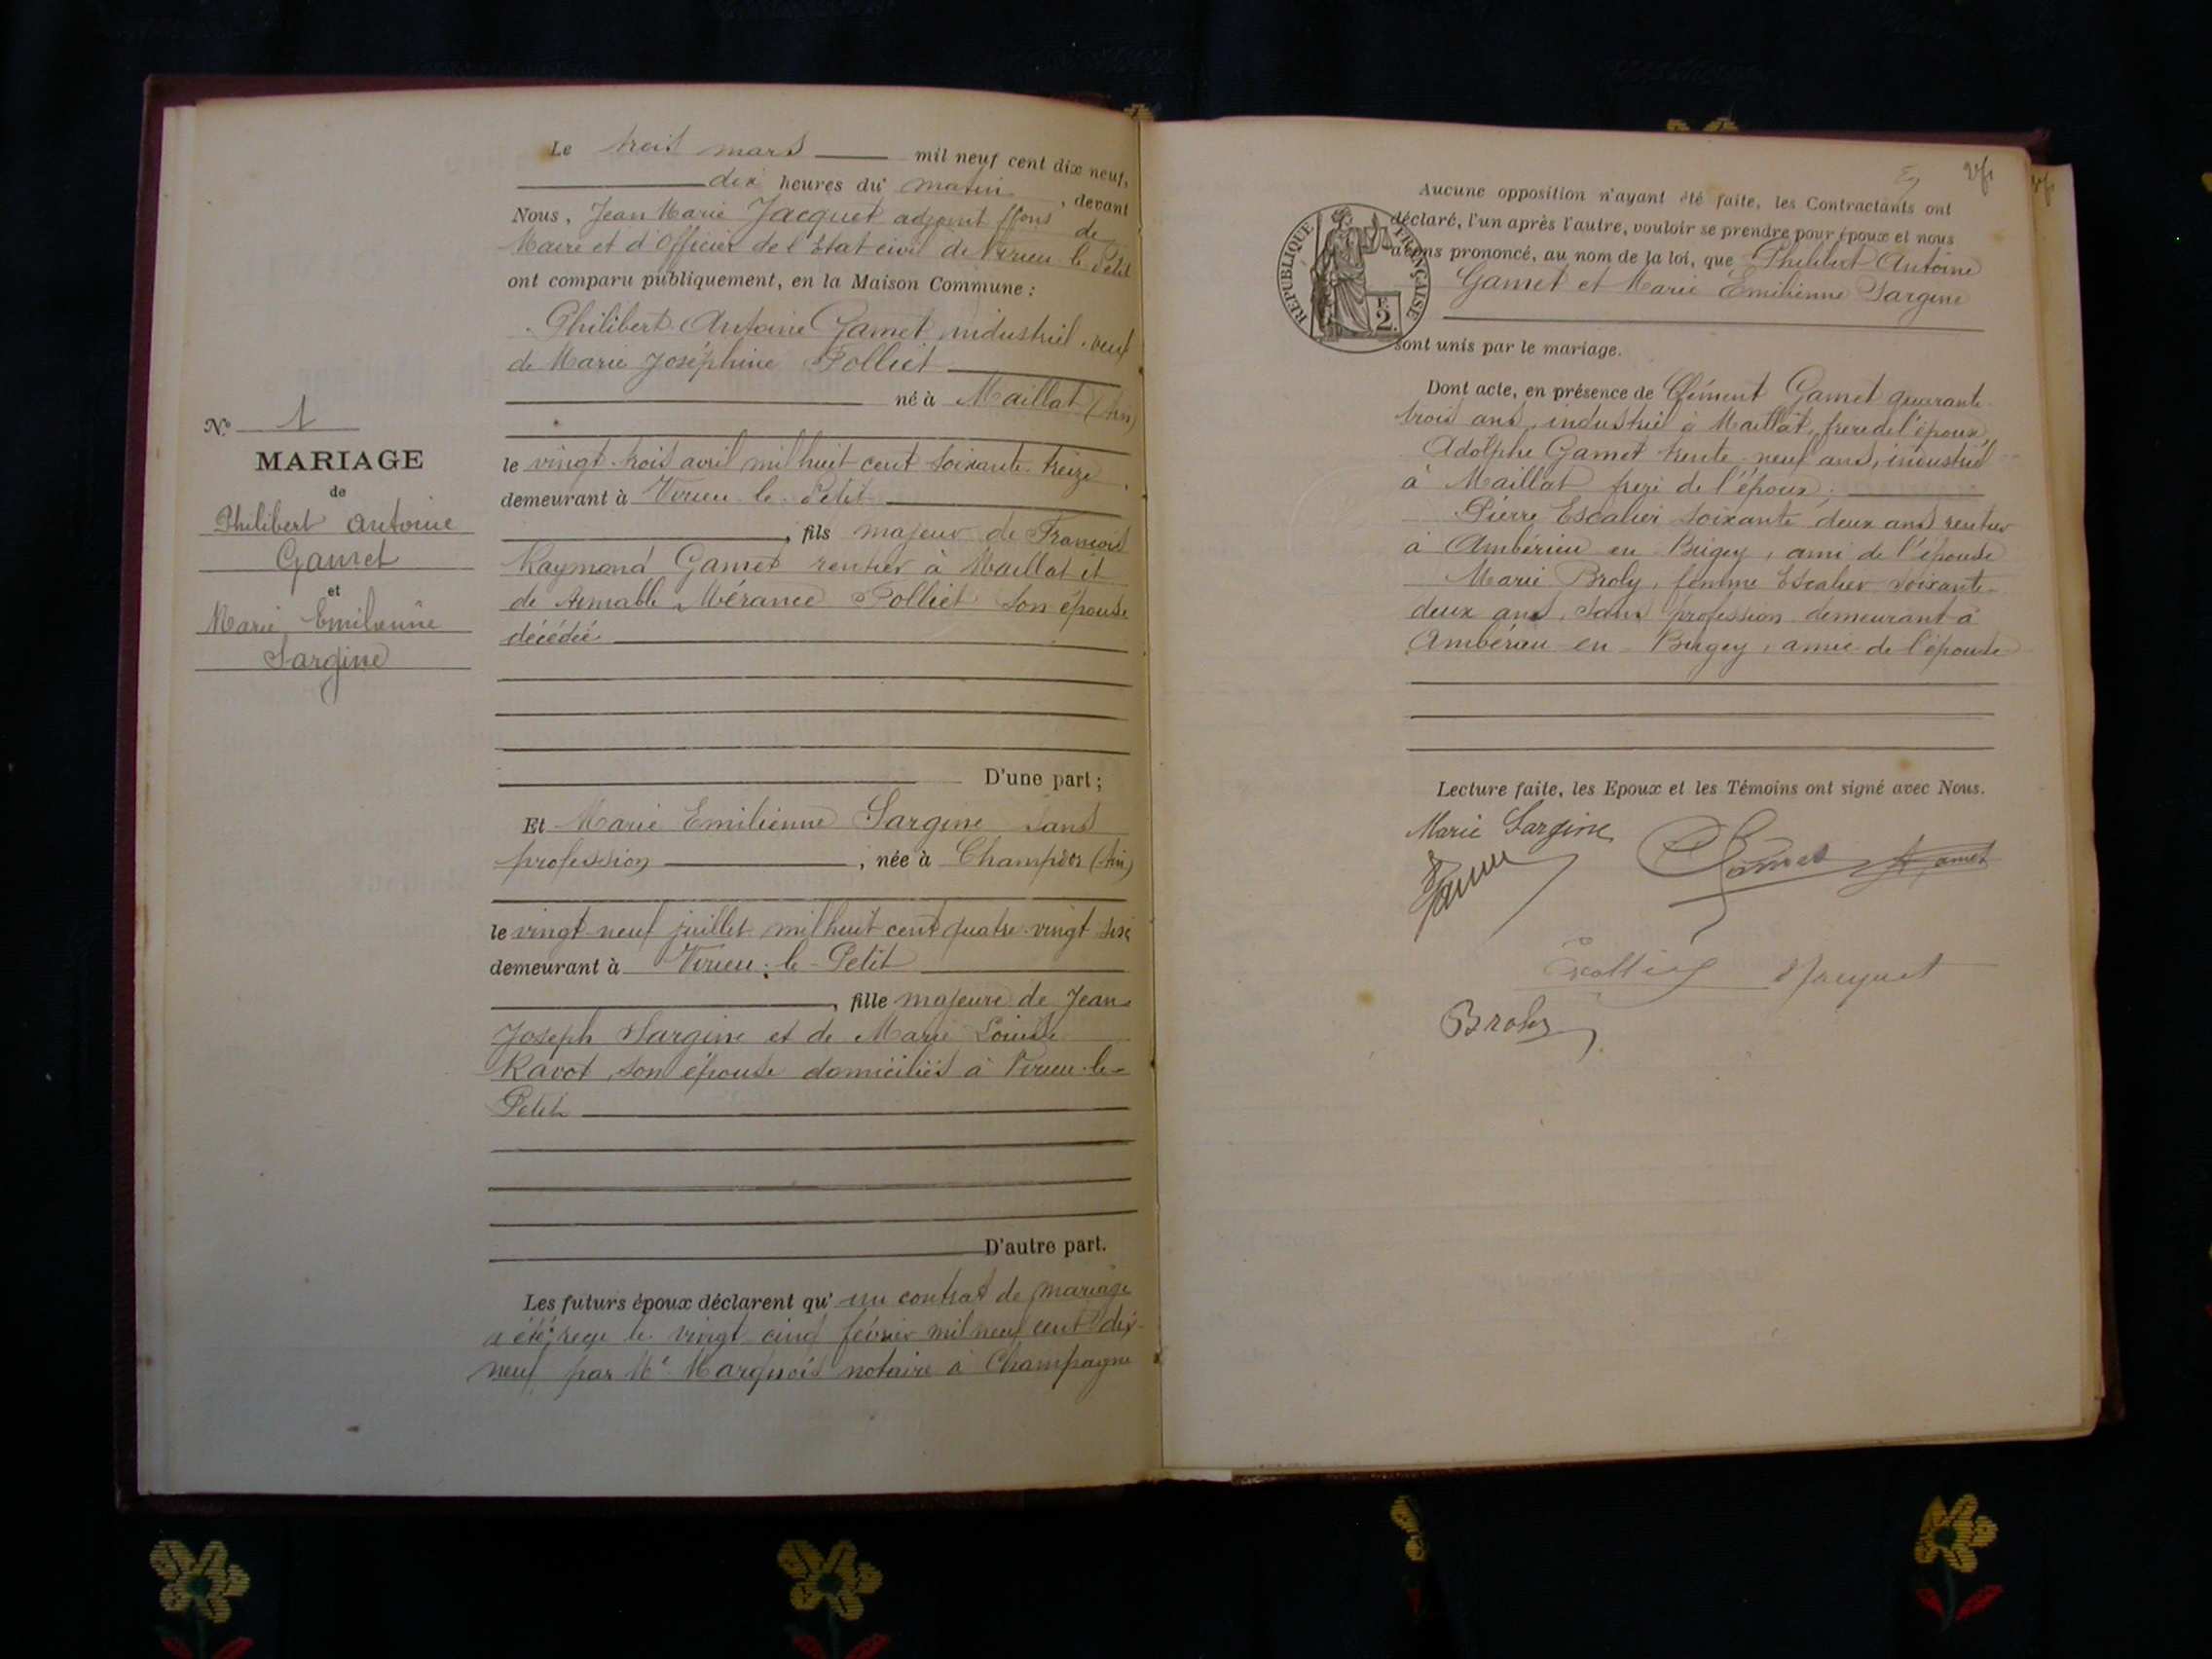 Le trois mars mil neuf cent dix neuf,
dix heures du matin, devant
Nous, Jean Marie Jacquet adjoint ffons de
Maire et d'Officier de l'Etat civil de Virieu le Petit
ont comparu publiquement, en la Maison Commune :
Philibert Antoine Gamet, industriel, veuf
de Marie Joséphine Polliet
né à Maillat (Ain)
le vingt-trois avril mil huit cent soixante-treize,
demeurant à Virieu-le-Petit
, fils majeur de François
Raymond Gamet rentier à Maillat et
de Aimable Mérance Polliet son épouse
décédée
D'une part ;
Et Marie Emilienne Sargine sans
profession, née à Champdor (Ain)
le vingt-neuf juillet mil huit cent quatre-vingt six
demeurant à Virieu-le-Petit
, fille majeure de Jean
Joseph Sargine et de Marie Louise
Ravot, son épouse domiciliés à Virieu-le-
Petit
D'autre part.
Les futurs époux déclarent qu'un contrat de mariage
a été reçu le vingt cinq février mil neuf cent dix-
neuf par Me notaire à Champagne
No 1
MARIAGE
de
Philibert Antoine
Gamet
et
Marie Emilienne
Sargine
Aucune opposition n'ayant été faite, les Contractants ont
déclaré, l'un après l'autre, vouloir se prendre pour époux et nous
avons prononcé, au nom de la loi, que Philibert Antoine
Gamet et Marie Emilienne Sargine
sont unis par le mariage.
RÉPUBLIQUE FRANÇAISE
2 F.
Dont acte, en présence de Clément Gamet quarante-
trois ans, industriel à Maillat, frère de l'époux,
Adolphe Gamet trente-neuf ans, industriel
à Maillat frère de l'époux ;
Pierre Escalier soixante deux ans rentier
à Ambérieu en Bugey, ami de l'épouse
Marie Broly, femme Escalier soixante-
deux ans, sans profession demeurant à
Ambérieu-en-Bugey, amie de l'épouse
Lecture faite, les Epoux et les Témoins ont signé avec Nous.
Marie Sargine
Gamet
Gamet
Jacquet
Broly